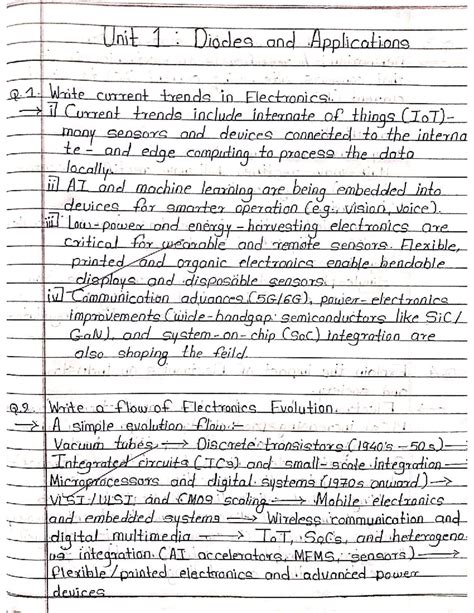 Unit 1 : Diodes and Applications
Q.1. Write current trends in Electronics.
→ i) Current trends include internate of things (IoT)-
many sensors and devices connected to the interna
te - and edge computing to process the data
locally.
ii) AI and machine learning are being embedded into
devices for smarter operation (e.g., vision, voice).
iii) Low-power and energy-harvesting electronics are
critical for wearable and remote sensors. Flexible,
printed and organic electronics enable bendable
displays and disposable sensors.
iv) Communication advances (5G/6G), power-electronics
improvements (wide-bandgap semiconductors like SiC/
GaN), and system-on-chip (SoC) integration are
also shaping the feild.
Q.2. Write a flow of Electronics Evolution.
→ A simple evolution flow:-
Vacuum tubes → Discrete transistors (1940's-50s) →
Integrated circuits (ICs) and small-scale integration →
Microprocessors and digital systems (1970s onward) →
VLSI/ULSI and CMOS scaling → Mobile electronics
and embedded systems → Wireless communication and
digital multimedia → IoT, SoCs, and heterogeno
us integration (AI accelerators, MEMS, sensors) →
flexible/printed electronics and advanced power
devices